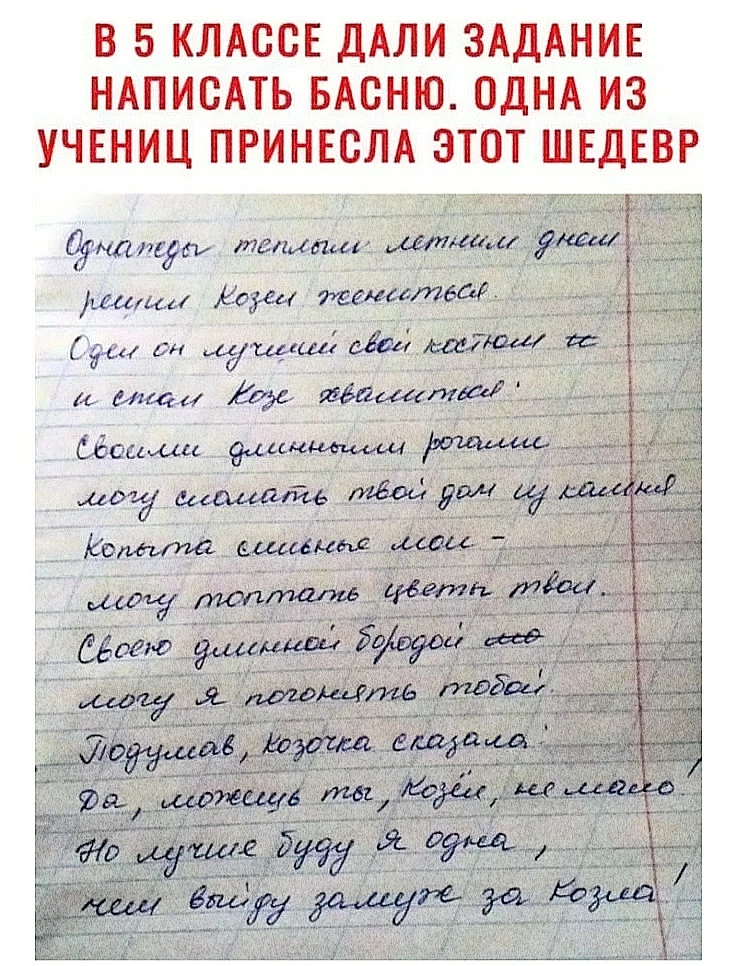 В 5 КЛАССЕ ДАЛИ ЗАДАНИЕ
НАПИСАТЬ БАСНЮ. ОДНА ИЗ
УЧЕНИЦ ПРИНЕСЛА ЭТОТ ШЕДЕВР
Однажды теплым летним днем
решил Козел жениться.
Одел он лучший свой костюм
и стал Козе хвалиться:
Своими длинными рогами
могу сломать твой дом из камня
Копыта сильные мои –
могу топтать цветы твои.
Своею длинной бородой
могу я погонять тобой.
Подумав, Козочка сказала:
Да, можешь ты, Козёл, не мало!
Но лучше буду я одна,
чем выйду замуж за Козла!